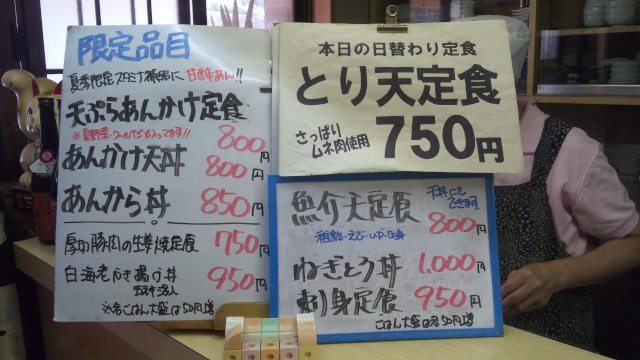 限定品目
夏季限定スタミナ補給に 甘酢あん!!
天ぷらあんかけ定食
※夏野菜
800円
あんかけ天丼 800円
あんから丼 850円
厚切豚肉の生姜焼定食 750円
白海老かき揚げ丼 950円
※各ごはん大盛は50円増
本日の日替わり定食
とり天定食
さっぱり
ムネ肉使用
750円
魚介天定食 800円
天丼にも
できます。
稚鮎・えび・いか・白身
ねぎとろ丼 1,000円
刺身定食 950円
ごはん大盛は各50円増